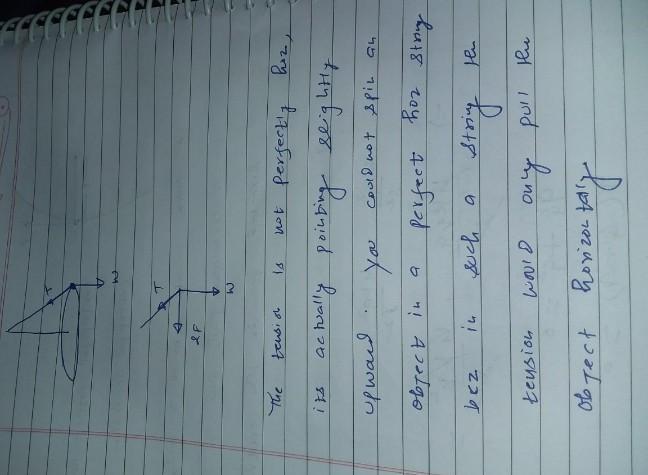 T
W
T
W
ΣF
The tension is not perfectly hoz,
its actually pointing slightly
upward. You could not spin an
object in a perfect hoz string
bcz in such a string the
tension would only pull the
object horizontally